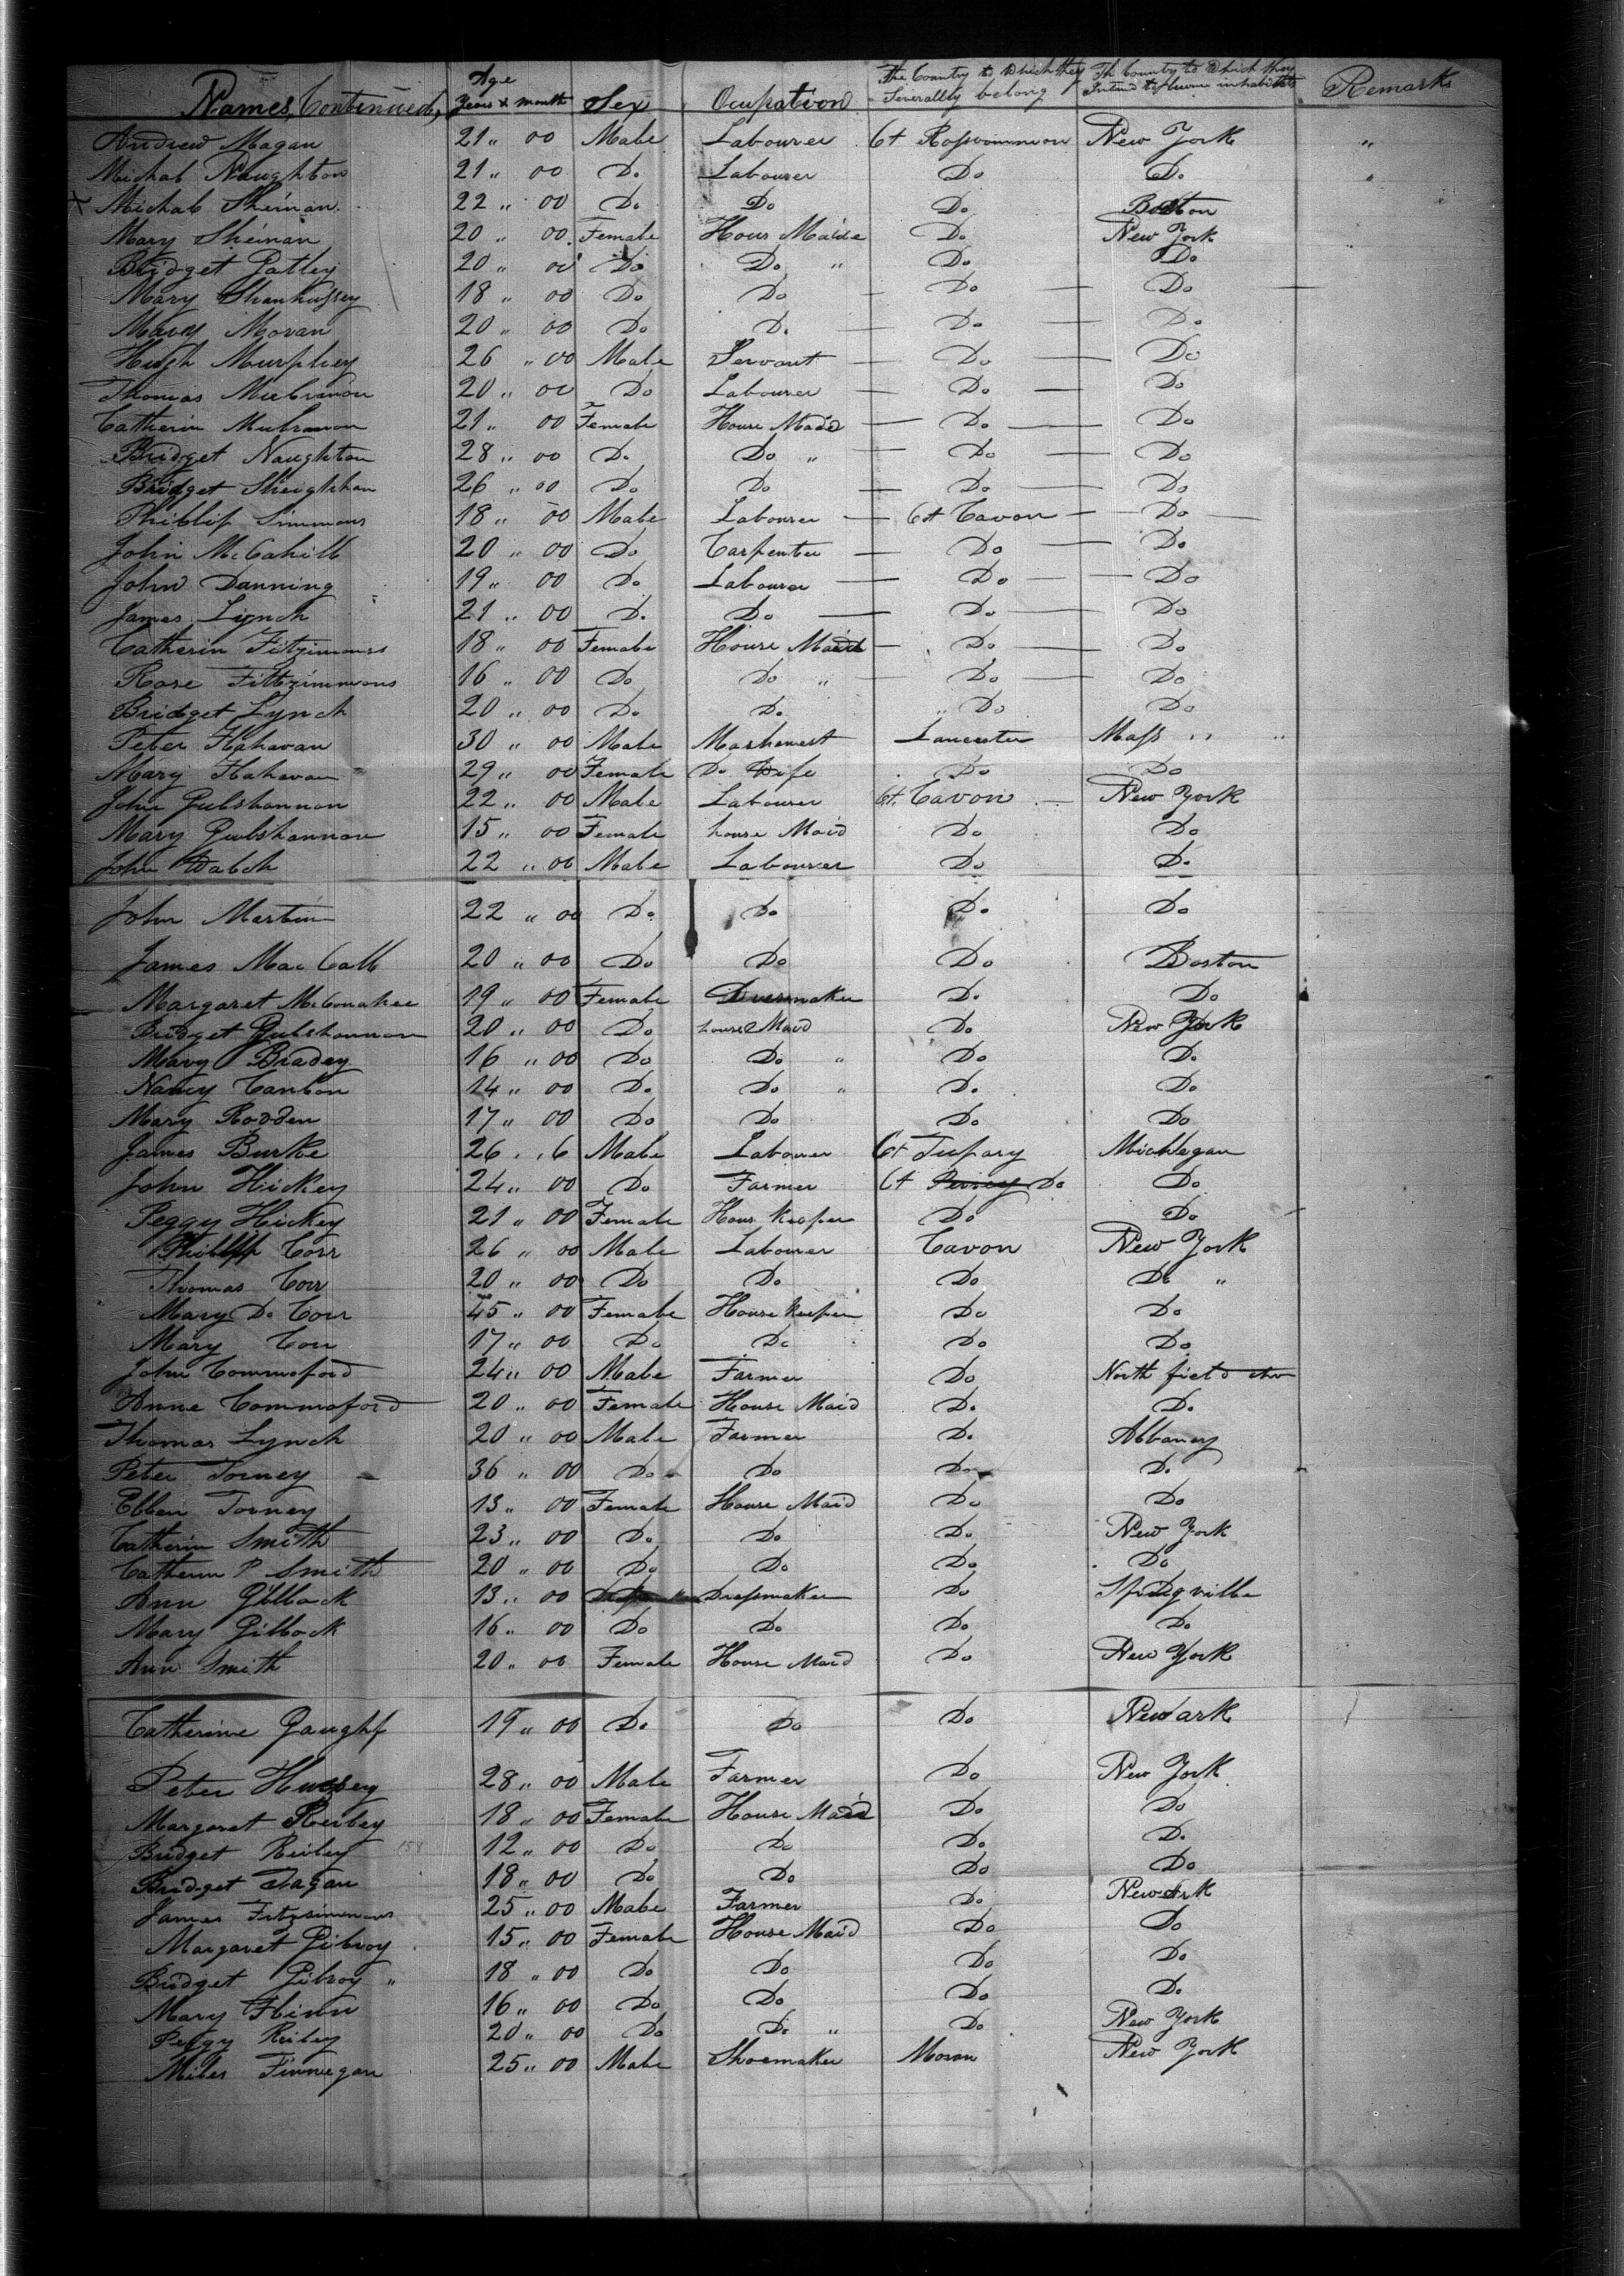 Names Continued, Age Years & month Sex Ocupation The Country to Which they Severallty belong Th Country to Which they Intend to becum inhabitets Remarks
Andrew Magan 21 " 00 Male Labourer Ct Rosscommon New York "
Michal Naughton 21 " 00 Do Labourer Do Do "
X Michal Sheinan 22 " 00 Do Do Do Boston
Mary Sheinan 20 " 00 Female Hous Maide Do New York
Bridget Gatley 20 " 00 Do Do " Do Do
Mary Shanhussey 18 " 00 Do Do Do Do
Mary Moran 20 " 00 Do Do Do Do
Hugh Murphey 26 " 00 Male Servant Do Do
Thomas 20 " 00 Do Labourer Do Do
Catherin 21 " 00 Female House Maid Do Do
Bridget Naughton 28 " 00 Do Do " Do Do
Bridget 26 " 00 Do Do Do Do
Phillip Simmons 18 " 00 Male Labourer Ct Cavon Do
John McCahill 20 " 00 Do Carpenter Do Do
John Danning 19 " 00 Do Labourer Do Do
James Lynch 21 " 00 Do Do Do Do
Catherin Fitzimmons 18 " 00 Female House Maid Do Do
Rose Fittzimmons 16 " 00 Do Do " Do Do
Bridget Lynch 20 " 00 Do Do " Do Do
Peter Hahavan 30 " 00 Male Mashenest Lancester Mass " "
Mary Hahavan 29 " 00 Female Do Wife Do Do
John Gulshannon 22 " 00 Male Labourer Ct. Cavon New York
Mary Gulshannon 15 " 00 Female house Maid Do Do
John Walch 22 " 00 Male Labourer Do Do
John Martin 22 " 00 Do Do Do Do
James Mac Call 20 " 00 Do Do Do Boston
Margaret McConahee 19 " 00 Female Dressmaker Do Do
Bridget Gulshannon 20 " 00 Do house Maid Do New York
Mary Bradey 16 " 00 Do Do " Do Do
Nancy Canlon 14 " 00 Do Do " Do Do
Mary Rodden 17 " 00 Do Do Do Do
James Burke 26 " 6 Male Labourer Ct Tipary Michlegan
John Hickey 24 " 00 Do Farmer Ct Do Do
Peggy Hickey 21 " 00 Female Hous Keeper Do Do
Phillip Corr 26 " 00 Male Labourer Cavon New York
Thomas Corr 20 " 00 Do Do Do Do "
Mary Do Corr 45 " 00 Female House Keeper Do Do
Mary Corr 17 " 00 Do Do Do Do
John Commoford 24 " 00 Male Farmer Do North field
Anne Commoford 20 " 00 Female House Maid Do Do
Thomas Lynch 20 " 00 Male Farmer Do Albaney
Peter Torney 36 " 00 Do Do Do Do
Ellen Torney 13 " 00 Female House Maid Do Do
Catherin Smith 23 " 00 Do Do Do New York
Catherin P Smith 20 " 00 Do Do Do Do
Ann Gillock 13 " 00 Do Dressmaker Do
Mary Gillock 16 " 00 Do Do Do Do
Ann Smith 20 " 00 Female House Maid Do New York
Catherine 19 " 00 Do Do Do Newark
Peter 28 " 00 Male Farmer Do New York
Margaret Reiley 18 " 00 Female House Maid Do Do
Bridget Reiley 12 " 00 Do Do Do Do
Bridget Fagan 18 " 00 Do Do Do Do
James Fitzsimmons 25 " 00 Male Farmer Do Newark
Margaret Gilroy 15 " 00 Female House Maid Do Do
Bridget Gilroy " 18 " 00 Do Do Do Do
Mary Flinn 16 " 00 Do Do Do Do
Peggy Reiley 20 " 00 Do Do " Do New York
Miles Finnegan 25 " 00 Male Shoemaker Moran New York